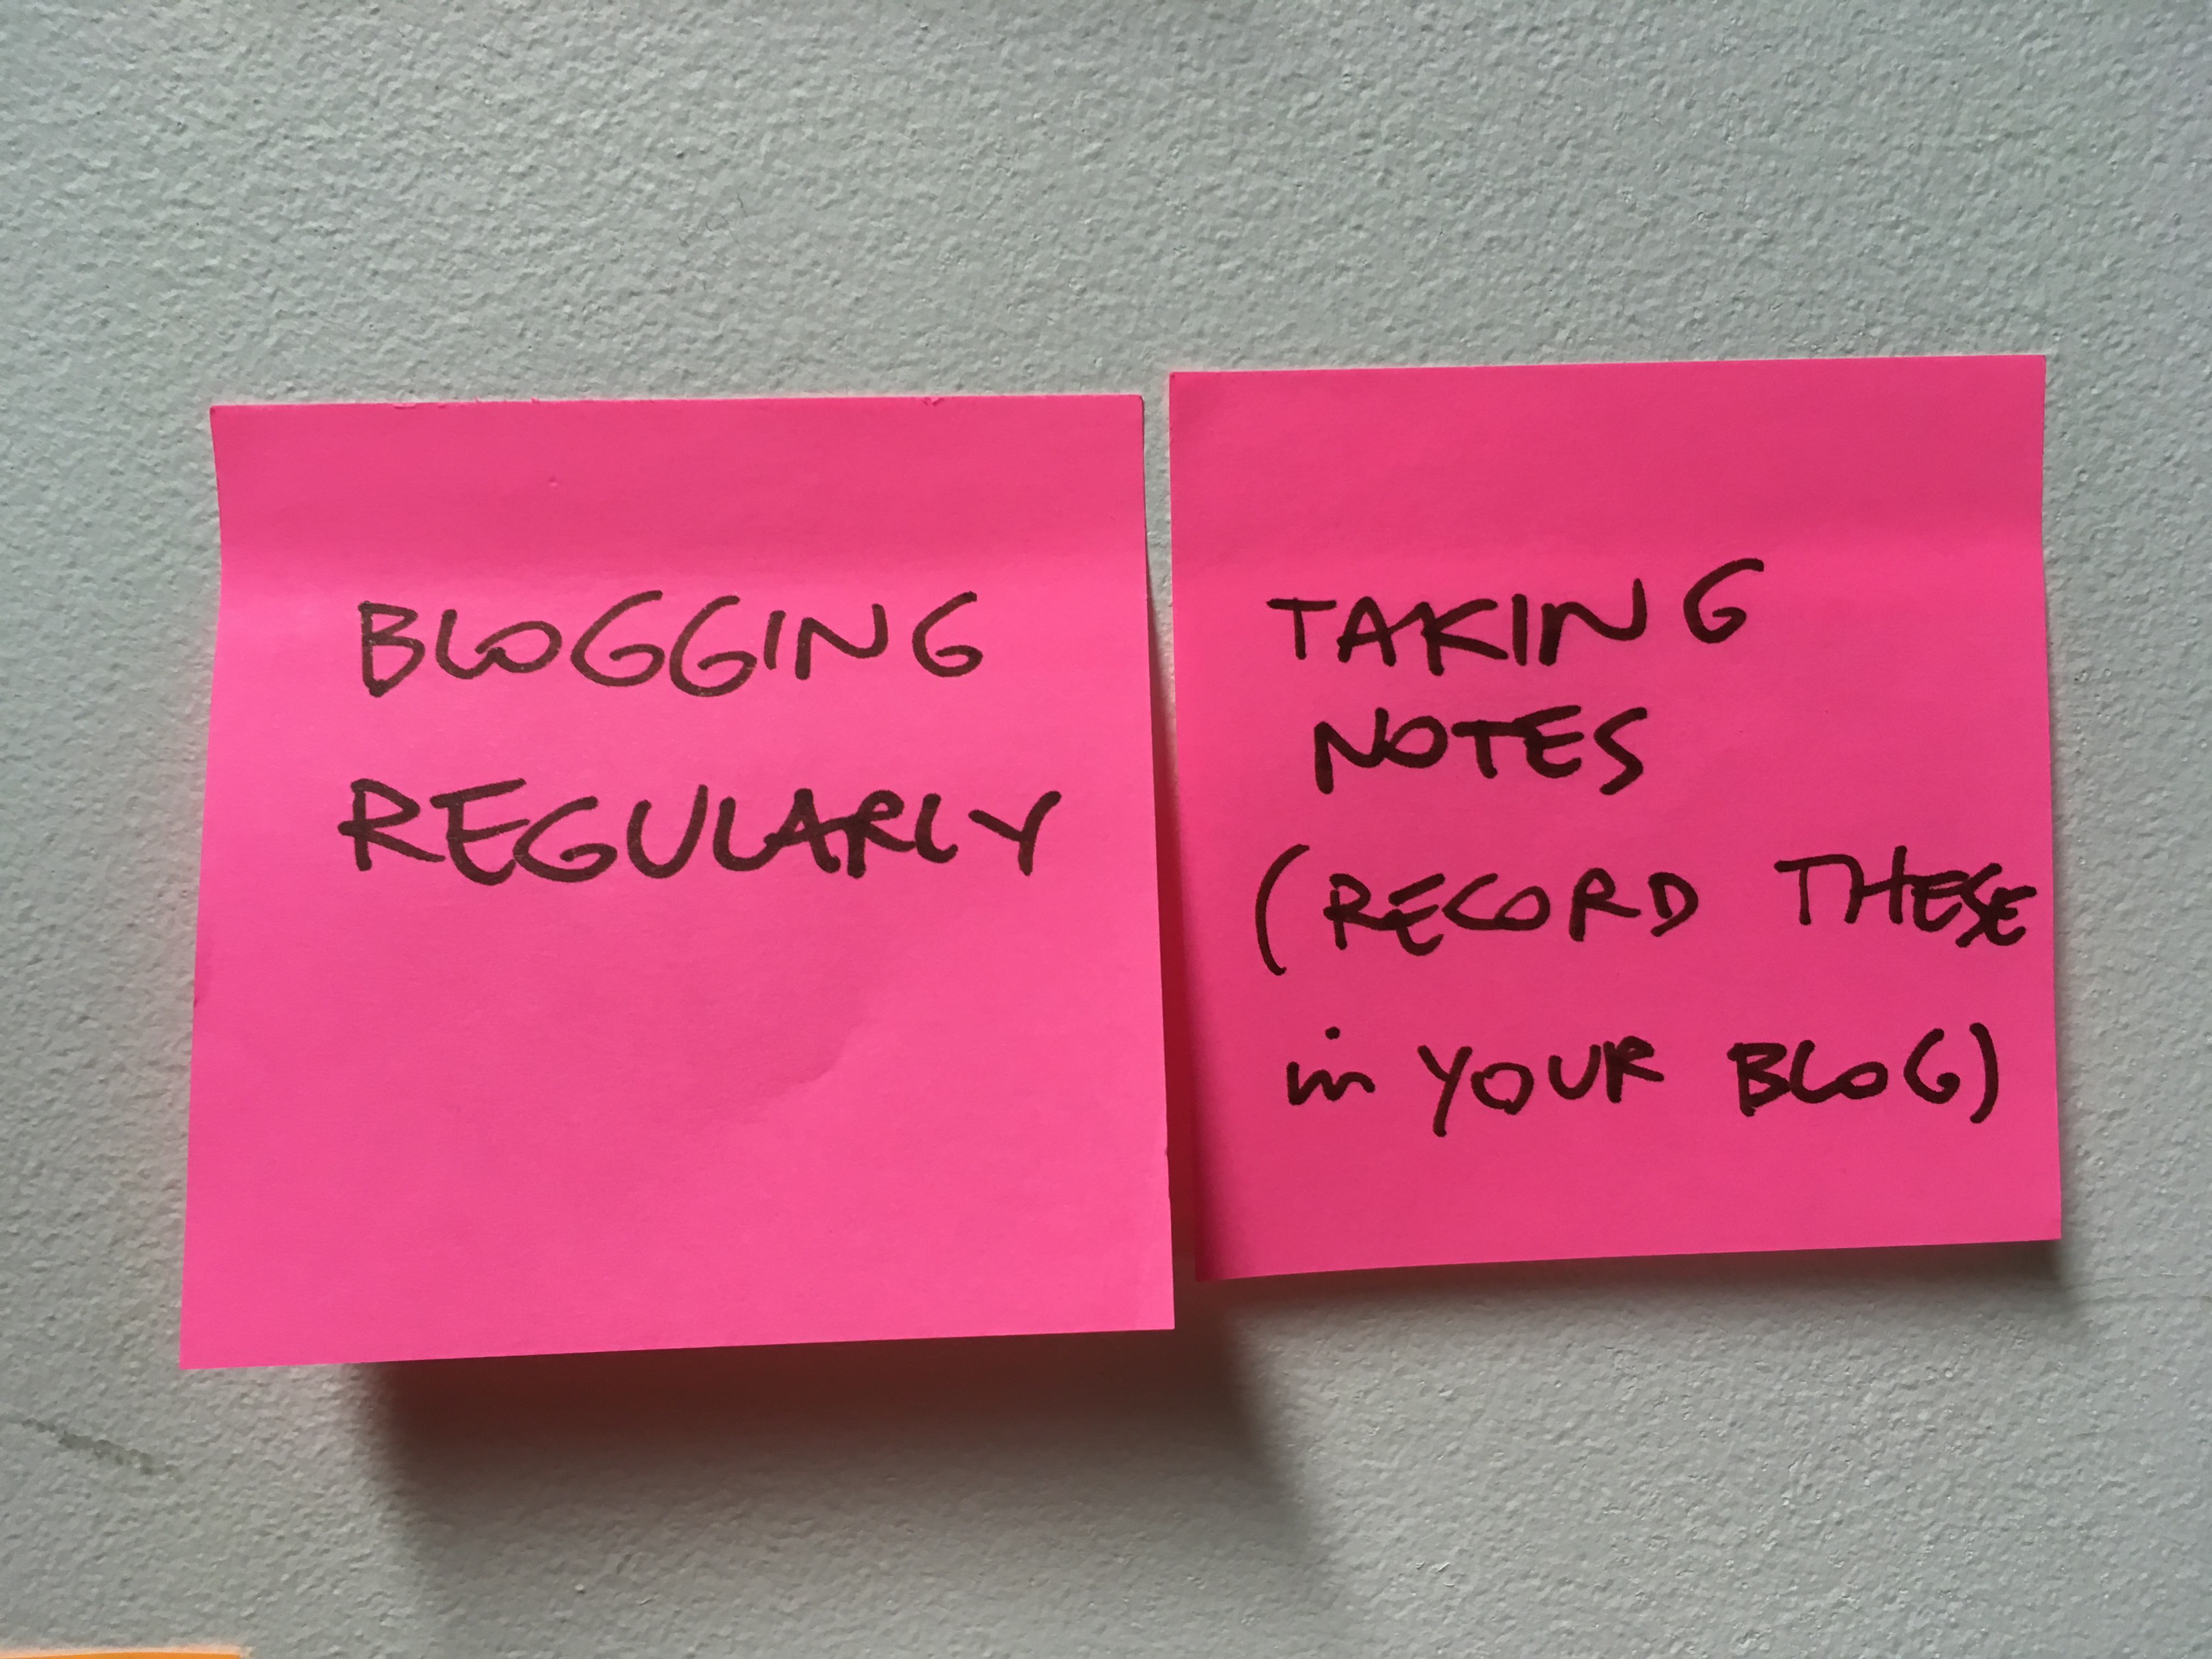 BLOGGING
REGULARLY
TAKING
NOTES
(RECORD THESE
in YOUR BLOG)